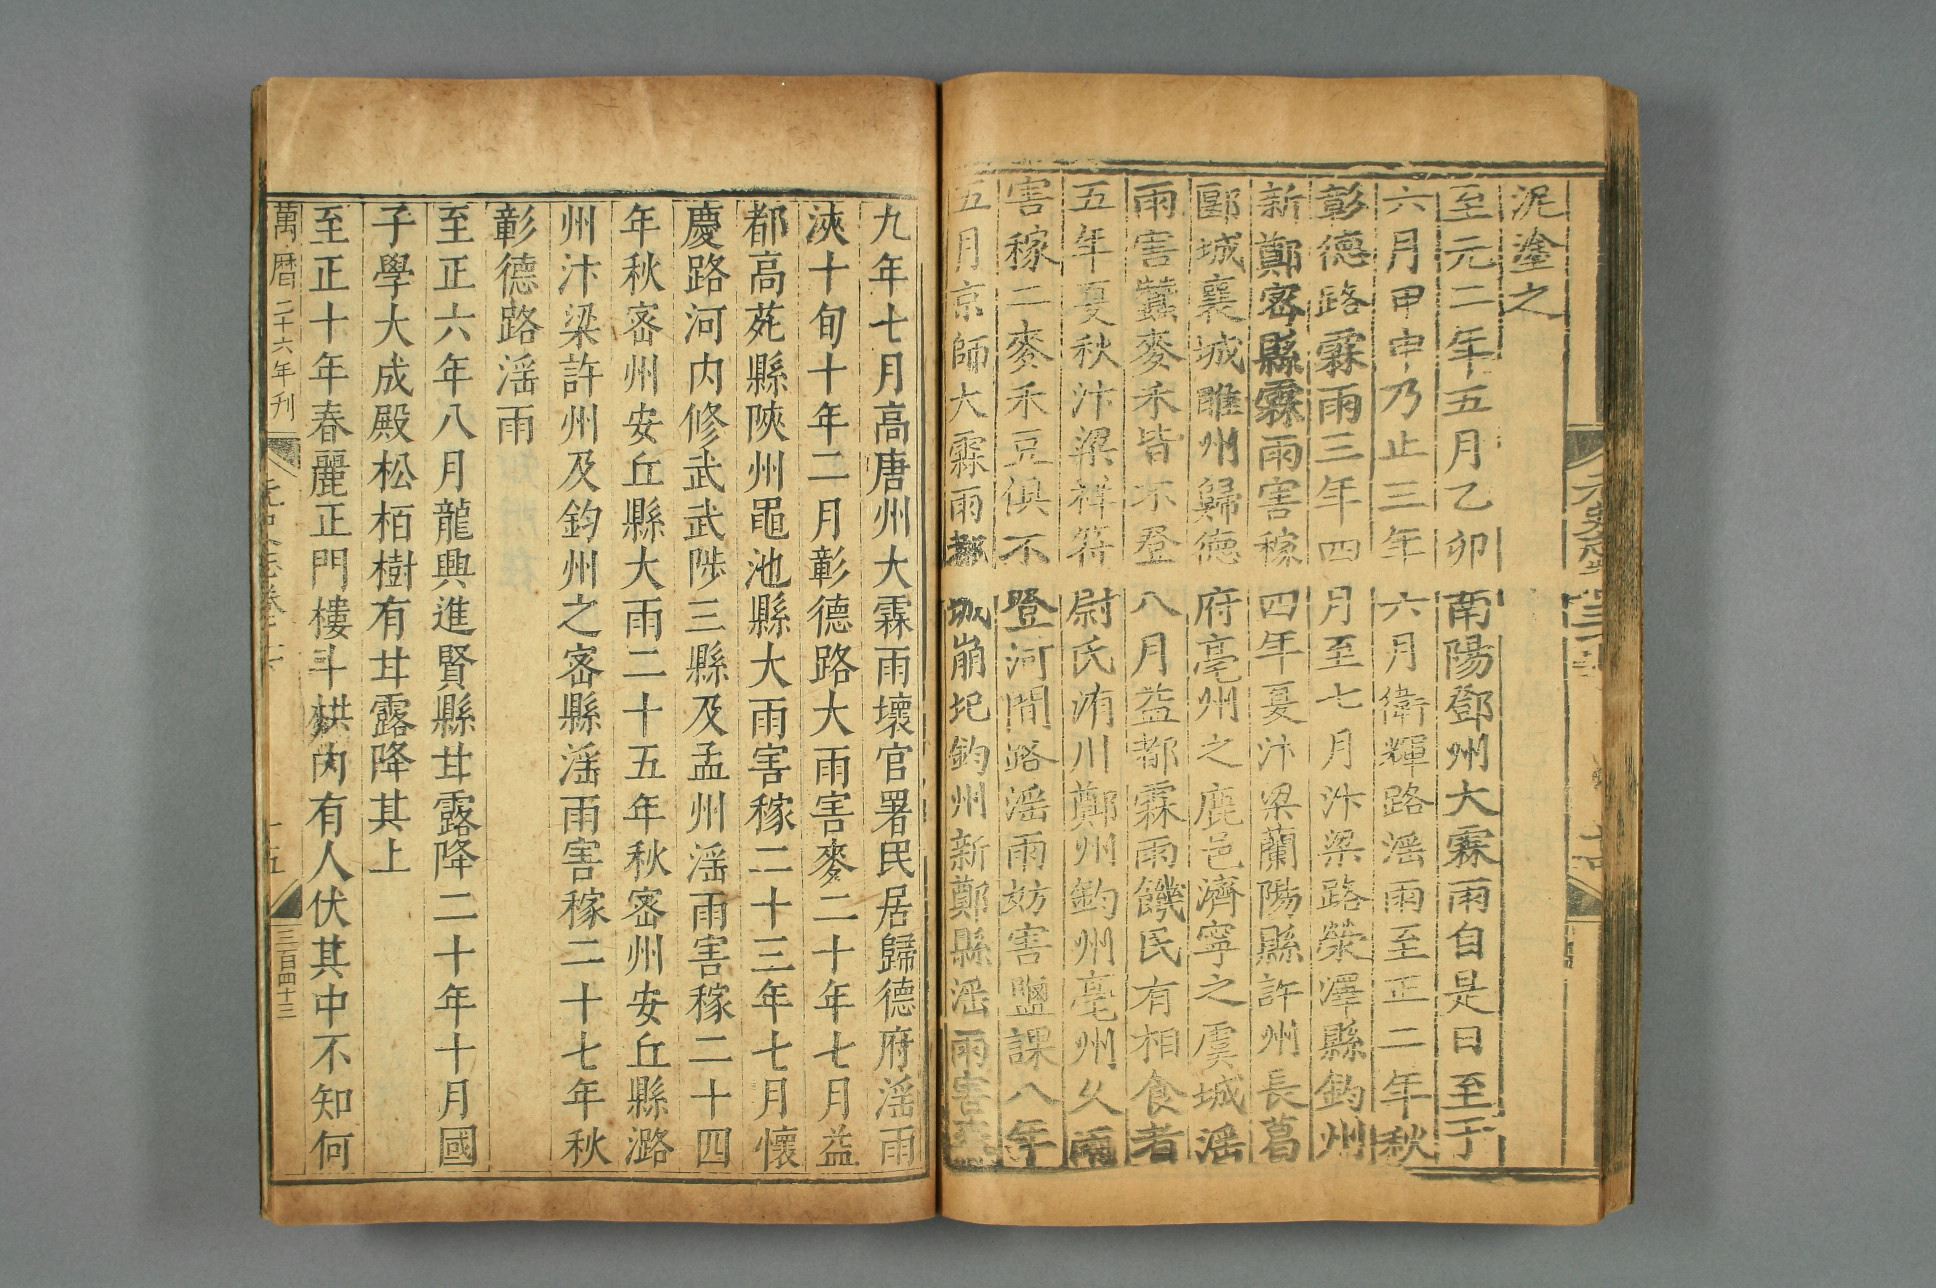 泥塗之
至元二年五月乙卯南陽鄧州大霖雨自是日至于
六月甲申乃止三年六月衛輝路滛雨至正二年秋
彰德路霖雨三年四月至七月汴梁路滎澤縣鈞州
新鄭密縣霖雨害稼四年夏汴梁蘭陽縣許州長葛
郾城襄城睢州歸德府亳州之鹿邑濟寧之虞城滛
雨害蠶麥禾皆不登八月益都霖雨饑民有相食者
五年夏秋汴梁祥符尉氏洧川鄭州鈞州亳州乆雨
害稼二麥禾豆俱不登河間路滛雨妨害鹽課八年
五月京師大霖雨都城崩圮鈞州新鄭縣滛雨害麥
九年七月高唐州大霖雨壞官署民居歸德府滛雨
浹十旬十年二月彰德路大雨害麥二十年七月益
都高苑縣陜州黽池縣大雨害稼二十三年七月懷
慶路河内修武武陟三縣及孟州滛雨害稼二十四
年秋密州安丘縣大雨二十五年秋密州安丘縣潞
州汴梁許州及鈞州之密縣滛雨害稼二十七年秋
彰德路滛雨
至正六年八月龍興進賢縣甘露降二十年十月國
子學大成殿松栢樹有甘露降其上
至正十年春麗正門樓斗栱内有人伏其中不知何
萬曆二十六年刊
十五
三百四十三